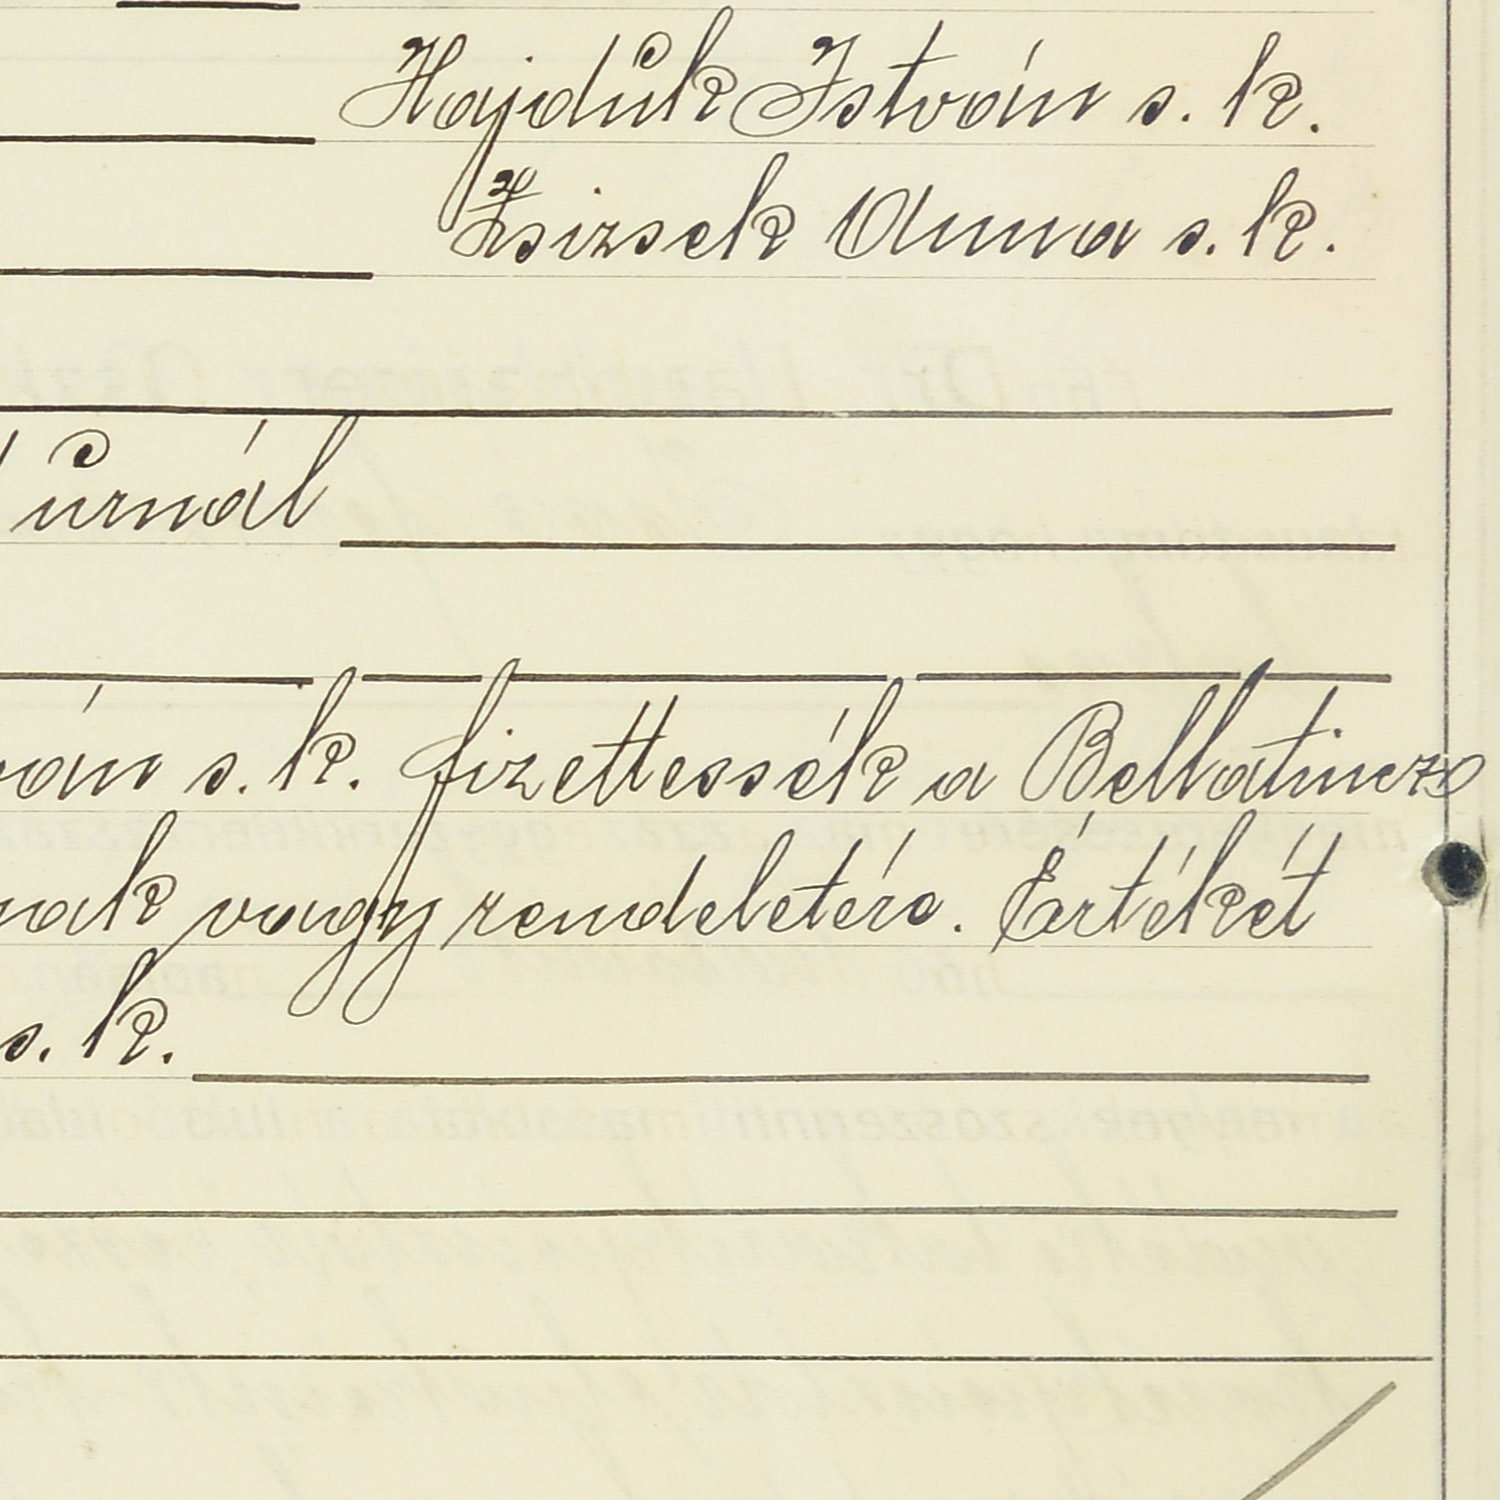 Hajduk István s. k.
Zsizsek Anna s. k.
urnál
ván s. k. fizettessék a Bellatincz
nak vagy rendeletére. Értékét
s. k.